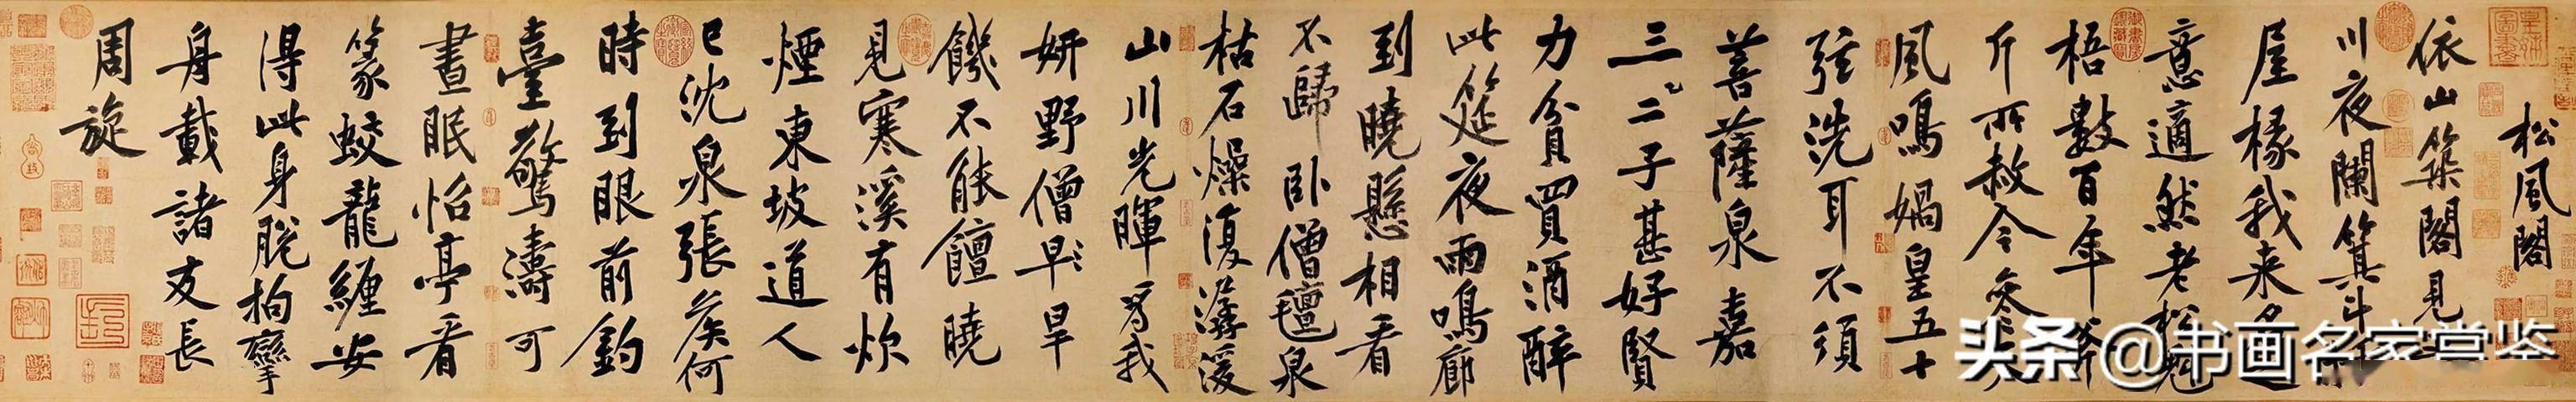 松風閣
依山築閣見
川夜闌箕斗
屋椽我来名
意適然老松魁
梧數百年斧
斤所赦今參天
風鳴媧皇五十
弦洗耳不須
菩薩泉嘉
三二子甚好賢
力貧買酒醉
此筵夜雨鳴廊
到曉懸相看
不歸卧僧氈泉
枯石燥復潺湲
山川光暉為我
妍野僧早旱
饑不能饘曉
見寒溪有炊
煙東坡道人
已沈泉張侯何
時到眼前釣
臺驚濤可
晝眠怡亭看
篆蛟龍纏安
得此身脫拘攣
舟載諸友長
周旋
头条 @书画名家赏鉴